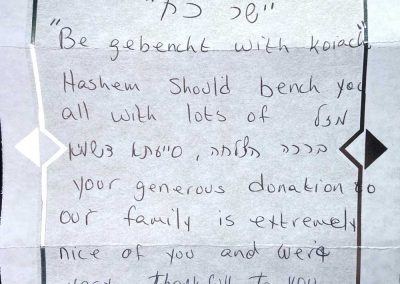 "ישר כח"
"Be gebencht with koiach"
Hashem should bench you
all with lots of מזל
ברכה הצלחה, סייעתא דשמיא
your generous donation to
our family is extremely
nice of you and were
very thankfull to you